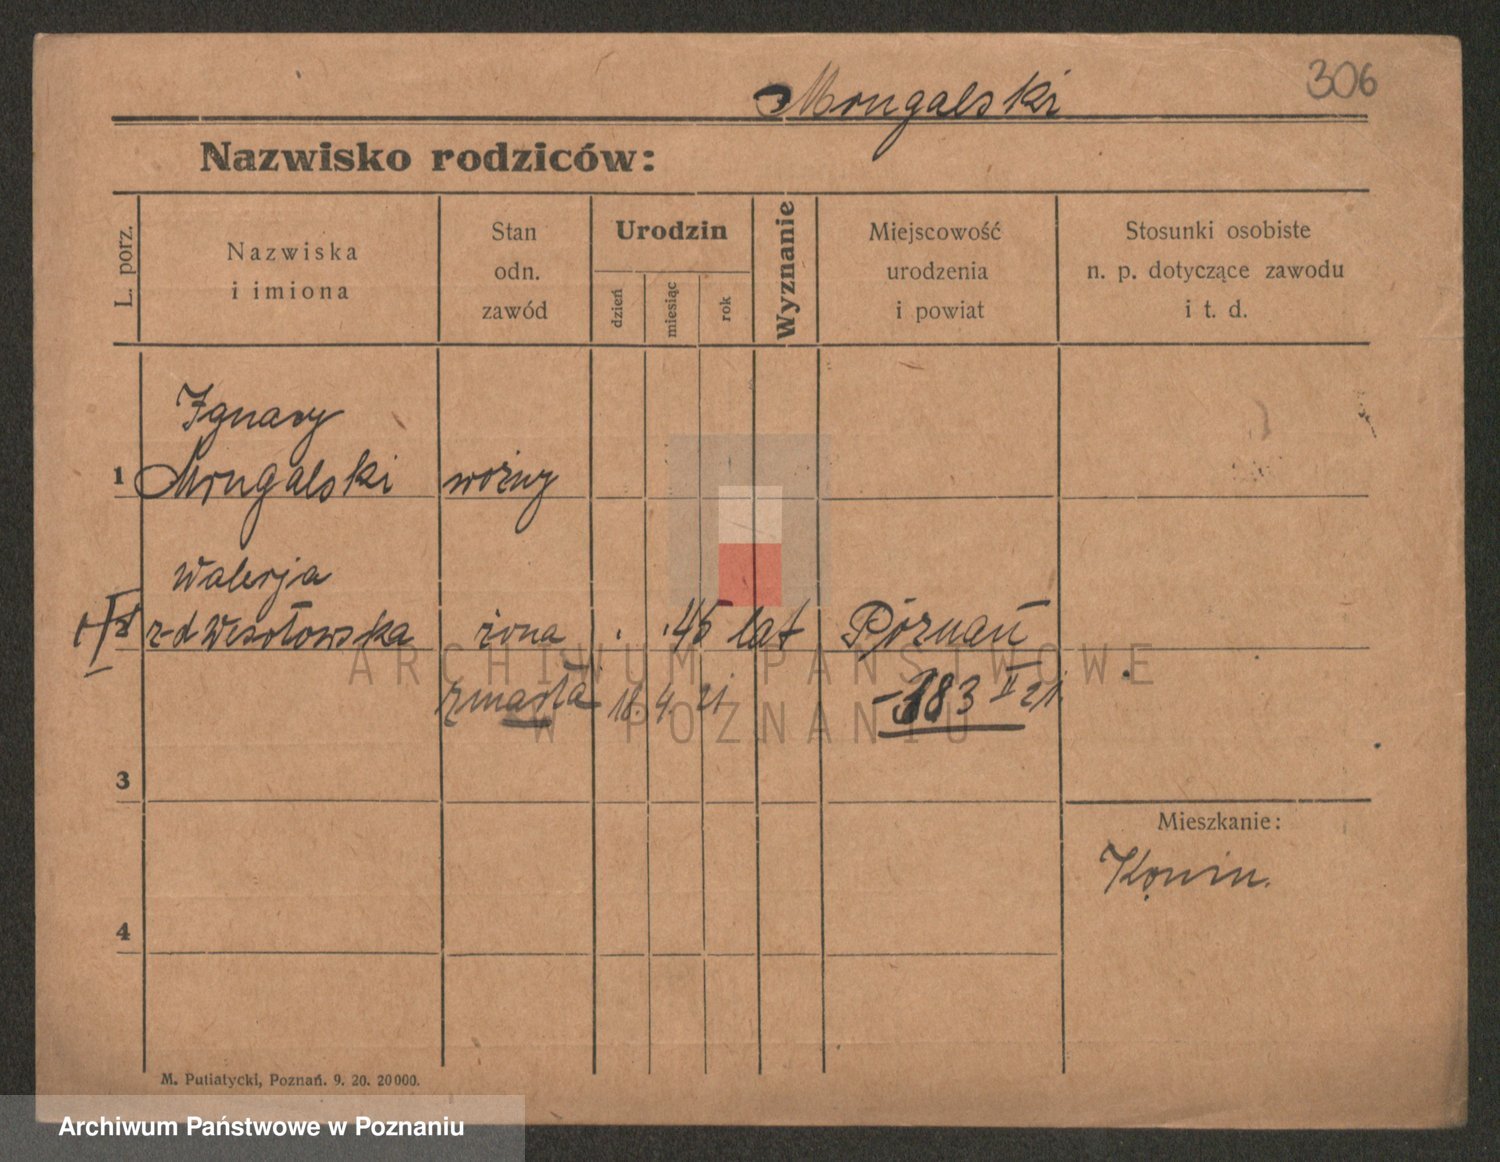 306
Mongalski
Nazwisko rodziców:
L. porz.
Nazwiska
i imiona
Stan
odn.
zawód
Urodzin
dzień
miesiąc
rok
Wyznanie
Miejscowość
urodzenia
i powiat
Stosunki osobiste
n. p. dotyczące zawodu
i t. d.
Ignacy
1 Mongalski woźny
Walerja
z-d Wesołowska żona 45 lat Poznań
zmarła 18. 4. 21. 383 II 21.
3
Mieszkanie:
Konin.
4
M. Putiatycki, Poznań. 9. 20. 20000.
ARCHIWUM PAŃSTWOWE
W POZNANIU
Archiwum Państwowe w Poznaniu